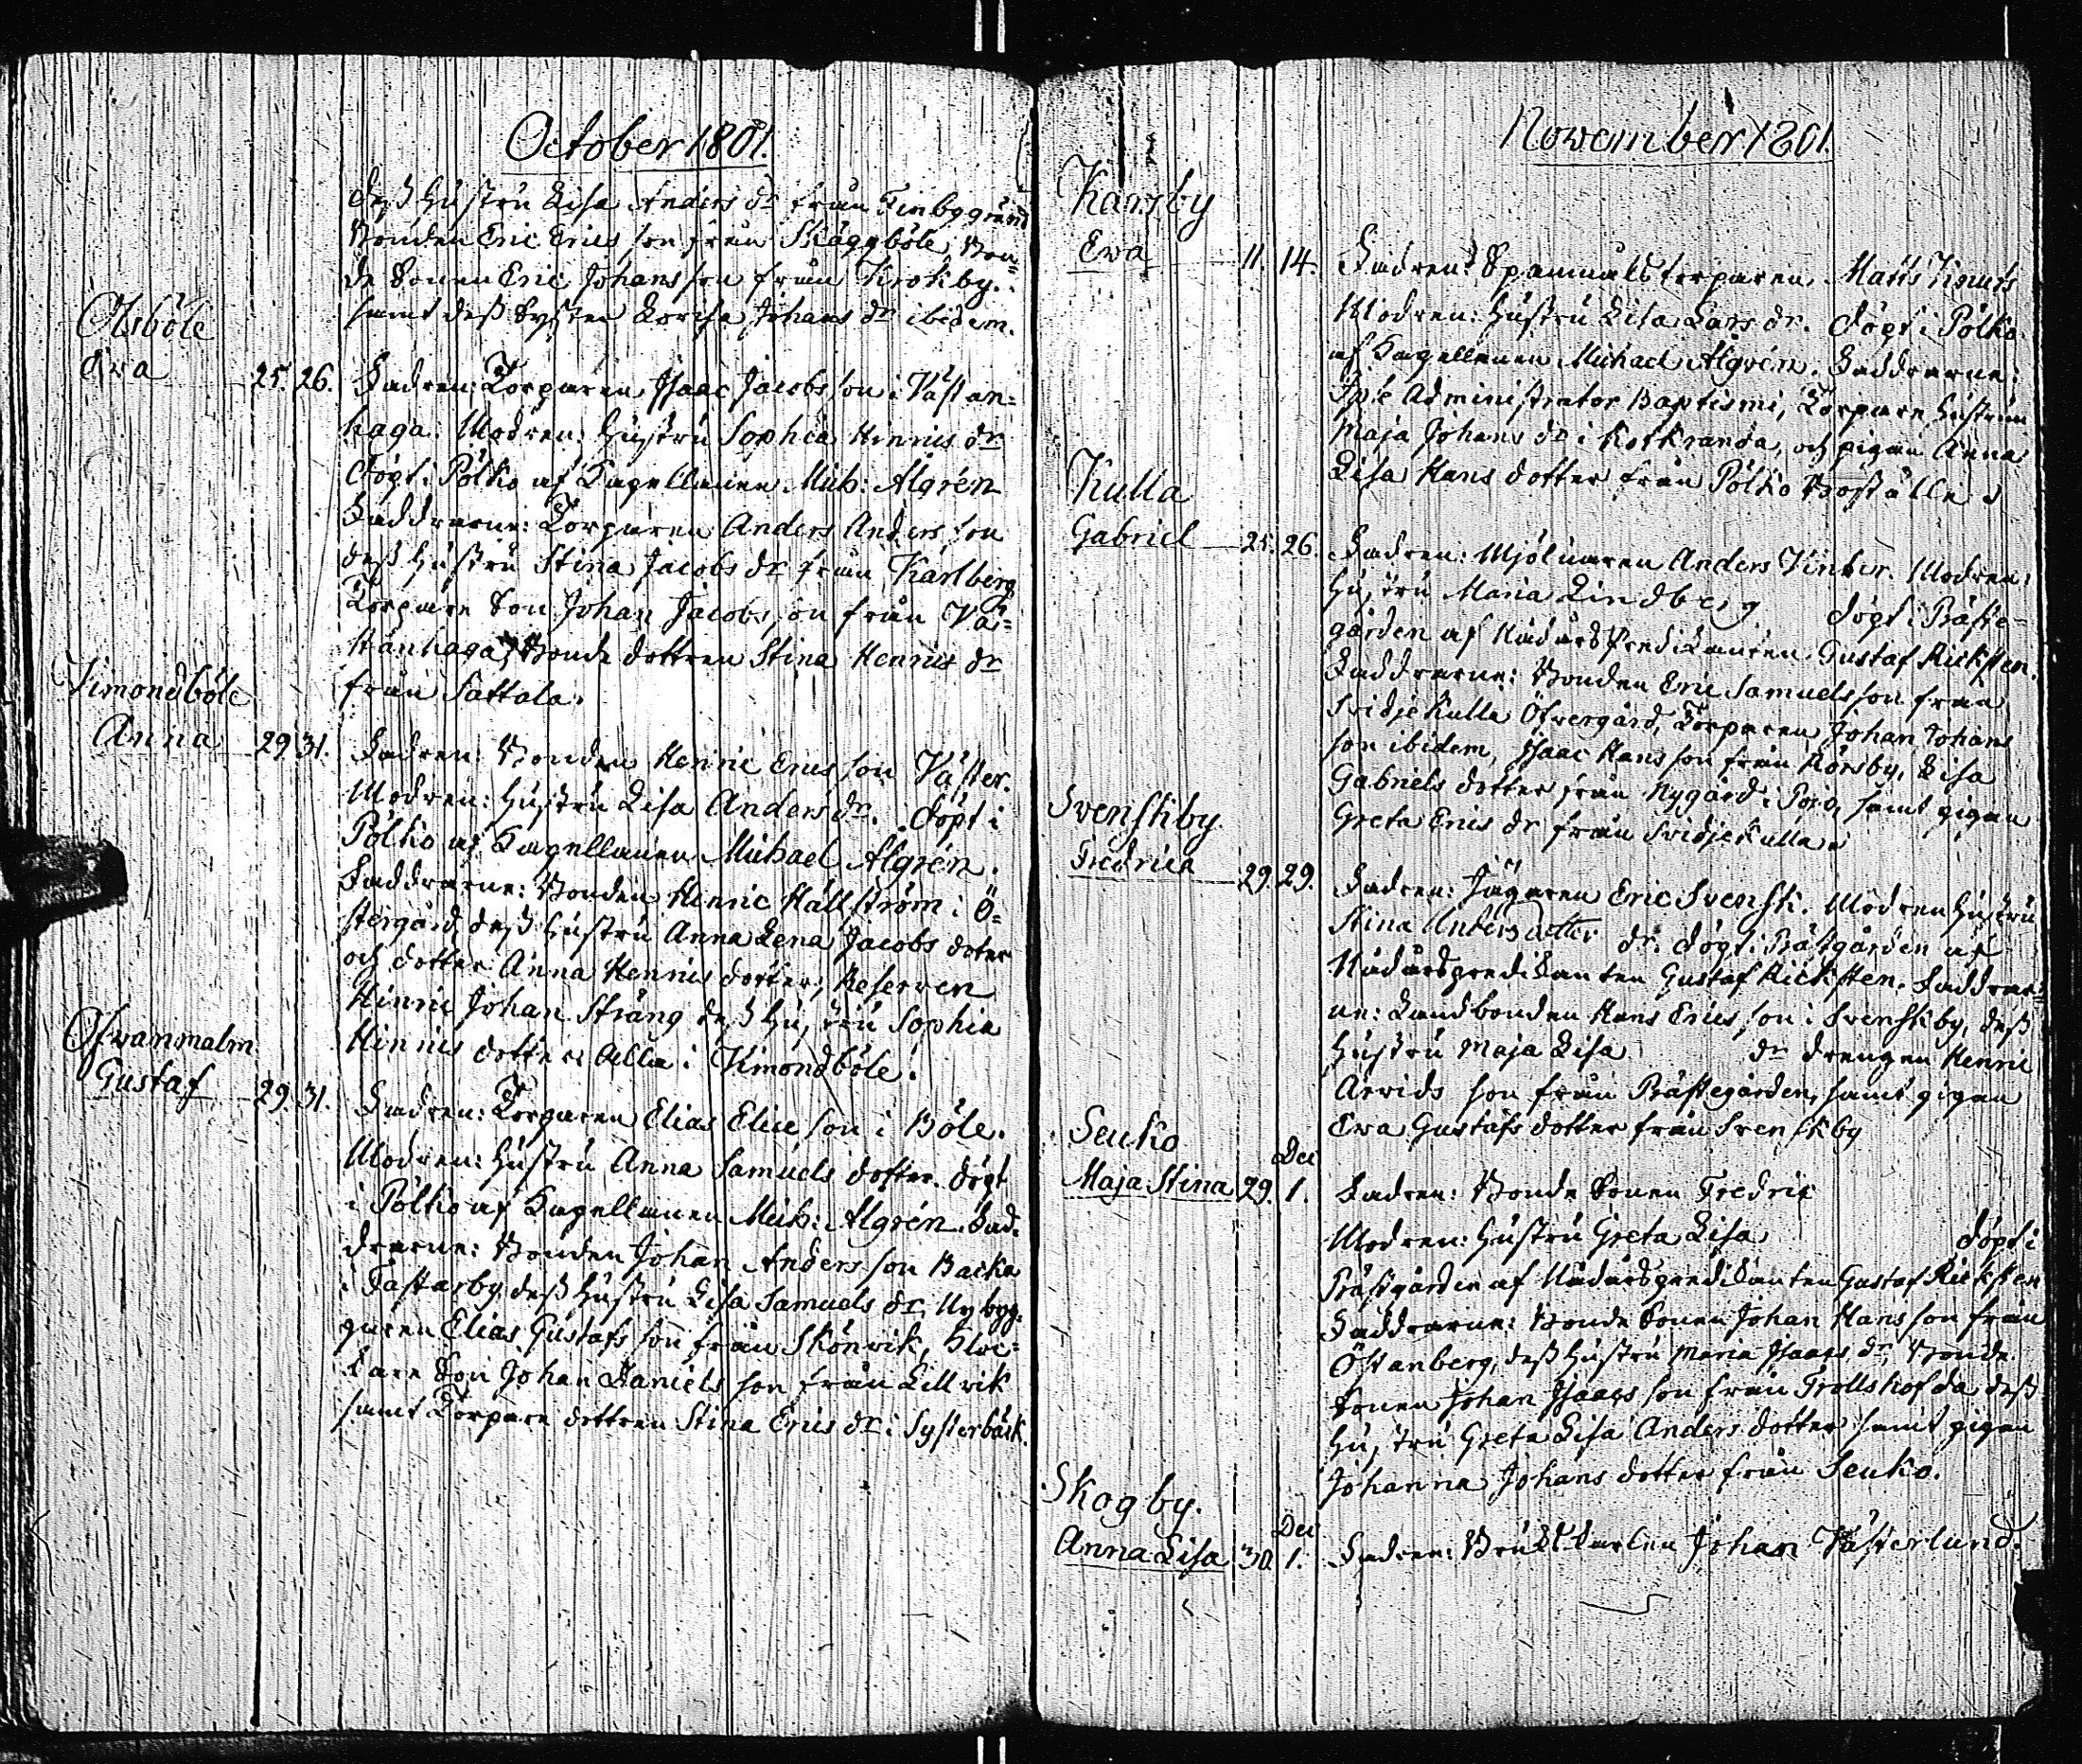 October 1801.
Dess Hustru Lisa Anders dr från Finbygränd
Bonden Eric Erics son från Skäggböle, Bon=
de Sonen Eric Johans son från Krokby.
samt dess Syster Lovisa Johans dr ibidem.
Olsböle
Eva 25. 26. Fadren: Torparen Isaac Jacobs son i Västan=
haga. Modren: Hustru Sophia Henrics dr
döpt i Pölko af Capellanen Mich: Algrén
Faddrarne: Torparen Anders Anders son
dess Hustru Stina Jacobs dr från Karlberg
Torpare Son Johan Jacobs son från Vä=
stanhaga, Bonde dottren Stina Henrics dr
från Sattala.
Vimondböle
Anna 29. 31. Fadren: Bonden Henric Erics son Väster.
Modren: Hustru Lisa Anders dr. döpt i
Pölko af Capellanen Michael Algrén.
Faddrarne: Bonden Henric Hällström i Ö=
stergård, dess Hustru Anna Lena Jacobs doter
och dotter Anna Henrics dotter, Reserven
Hinric Johan Sträng dess Hustru Sophia
Hinrics dotter alla i Vimondböle.
Ofvanmalm
Gustaf 29. 31. Fadren: Torparen Elias Elice son i Böle.
Modren: Hustru Anna Samuels dotter. döpt
i Pölko af Capellanen Mich: Algrén. Fad=
drarne: Bonden Johan Anders son Backa
i Fastarby, dess Hustru Lisa Samuels dr, Nybyg=
garen Elias Gustafs son från Skönvik,
Son Johan Daniels son från Lillvik
samt Torpare dottren Stina Erics dr i Systerbäck.
November 1801
Karsby
Eva 11. 14. Fadren: Matts
Modren: Hustru Lisa Lars dr. döpt i Pölko
af Capellanen Michael Algrén. Faddrarne:
Ipse Administrator Baptismi, Torpare Hustrun
Maja Johans dr i Korkranda, och pigan Anna
Lisa Hans dotter från Pölko Boställe
Kulla
Gabriel 25. 26. Fadren: Mjölnaren Anders Vinter. Modren:
Hustru Maria Lindberg döpt i Präste=
gården af Nådårs Predikanten Gustaf Ricksten.
Faddrarne: Bonden Eric Samuels son från
Svidjekulla Öfvergård, Torparen Johan Johans
son ibidem, Isaac Hans son från Korsby, Lisa
Gabriels dotter från Nygård i Pojo, samt pigan
Greta Erics dr från Svidjekulla
Svenskby
Fredrica 29. 29. Fadren: Jägaren Eric Svensk. Modren Hustru
Stina Anders dotter dr. döpt i Prästgården af
Nådårspredikanten Gustaf Ricksten. Faddrar=
ne: Landbonden Hans Erics son i Svenskby, dess
Hustru Maja Lisa dr drengen Henric
Arvids son från Prästegården, samt pigan
Eva Gustafs dotter från Svenskby
Seuko
Dec
Maja Stina 29. 1. Fadren: Bonde Sonen Fredric
Modren: Hustru Greta Lisa döpt i
Prästgården af Nådårspredikanten Gustaf Ricksten
Faddrarne: Bonde Sonen Johan Hans son från
Östanberg, dess Hustru Maria Isaacs dr, Bonde
Sonen Johan Isaacs son från Trollshofda dess
Hustru Greta Lisa Anders dotter samt pigan
Johanna Johans dotter från Seuko.
Skogby.
Dec
Anna Lisa 30. 1. Fadren: Bruks Karlen Johan Västerlund.